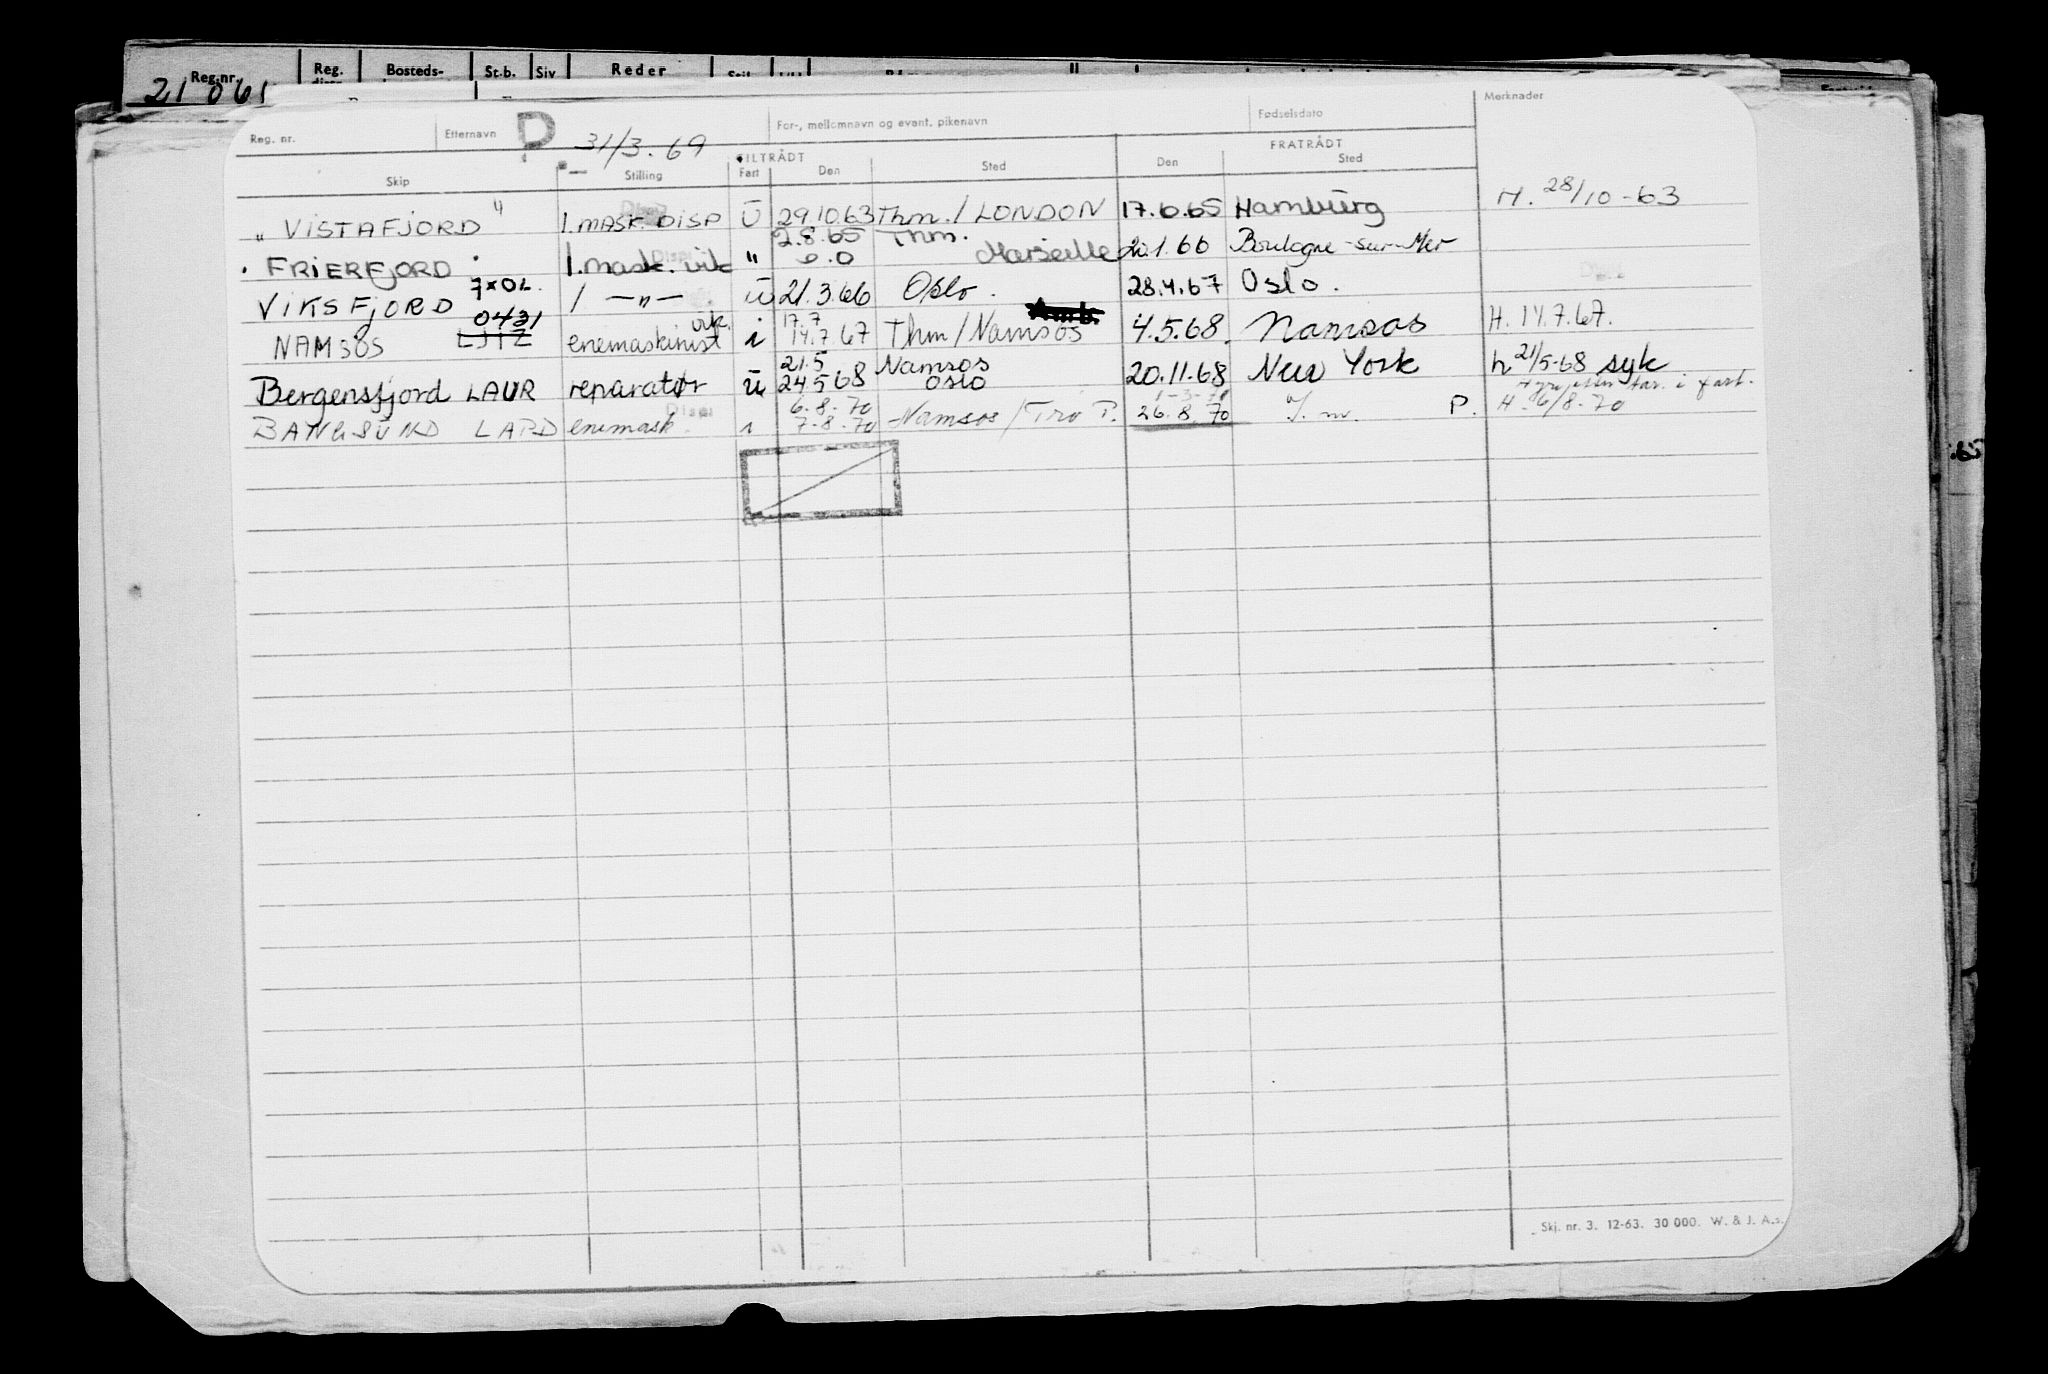 Reg.nr. Reg. Bosteds- St.b. Siv Reder
21061
Reg. nr. Etternavn D 31/3.69 For-, mellomnavn og event. pikenavn Fødselsdato Merknader
TILTRÅDT FRATRÅDT
Skip Stilling Fart Den Sted Den Sted
"VISTAFJORD" 1.MASK. DISP Ü 29.10.63 Thm./LONDON 17.6.65 Hamburg M. 28/10-63
2.8.65 Thm.
"FRIERFJORD" 1.mask. vik " Marseille 20.1.66 Boulogne-sur-Mer
VIKSFJORD 7XOL 1 —"— ü 21.3.66 Oslo. 28.4.67 Oslo.
0431 vik. 17.7
NAMSOS LJIZ enemaskinist i 14.7.67 Thm/Namsos 4.5.68. Namsos H. 14.7.67.
21.5 Namsos
Bergensfjord LAUR reparatør ü 24.5.68 Oslo 20.11.68 New York h 21/5-68 syk
6.8.70 1-3-71 i fart.
BANGSUND LAPD enemask. i 7-8-70 Namsos/Trø P. 26.8.70 P. H. 6/8-70
.65
Skj. nr. 3. 12-63. 30 000. W. & J. A.s.